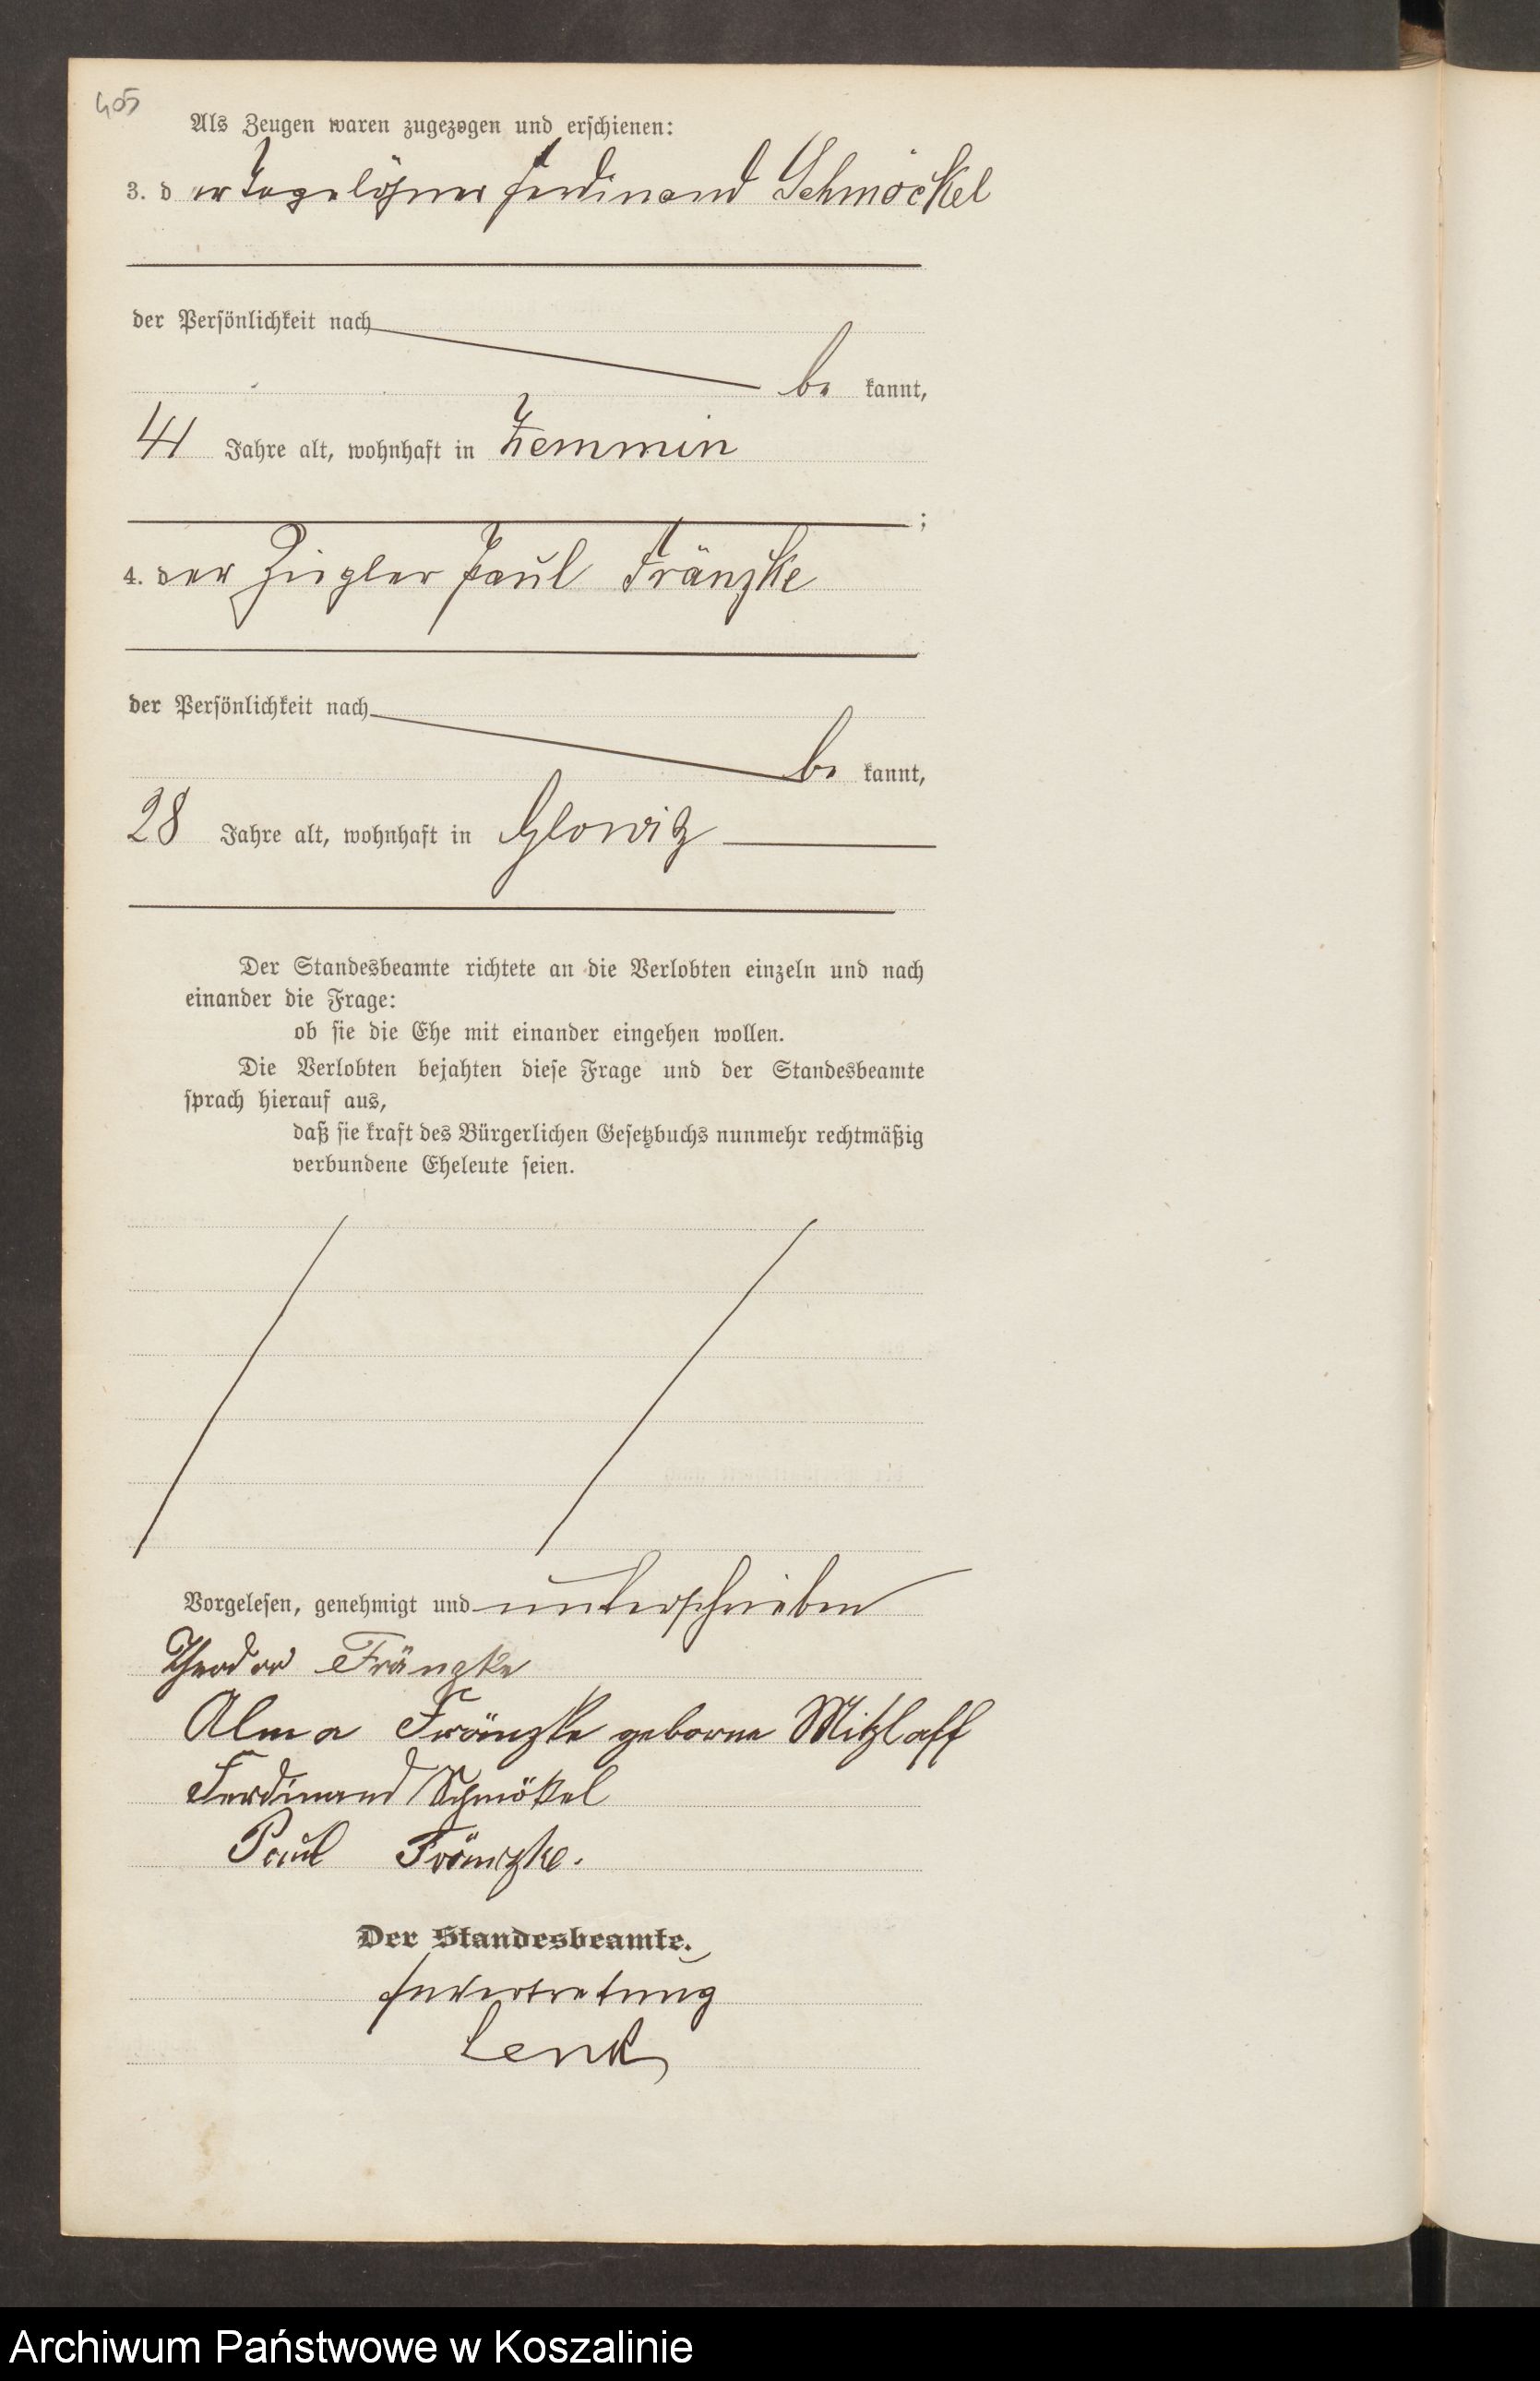 405
Als Zeugen waren zugezogen und erschienen:
3. der Tagelöhner Ferdinand Schmöckel
der Persönlichkeit nach
be kannt,
41 Jahre alt, wohnhaft in Zemmin
;
4. der Ziegler Paul Fränzke
der Persönlichkeit nach
be kannt,
28 Jahre alt, wohnhaft in Glowitz
Der Standesbeamte richtete an die Verlobten einzeln und nach
einander die Frage:
ob sie die Ehe mit einander eingehen wollen.
Die Verlobten bejahten diese Frage und der Standesbeamte
sprach hierauf aus,
daß sie kraft des Bürgerlichen Gesetzbuchs nunmehr rechtmäßig
verbundene Eheleute seien.
Vorgelesen, genehmigt und unterschrieben
Theodor Fränzke
Alma Fränzke geborne Mitzlaff
Ferdinand Schmökel
Paul Fränzke.
Der Standesbeamte.
In Vertretung
Lenk
Archiwum Państwowe w Koszalinie